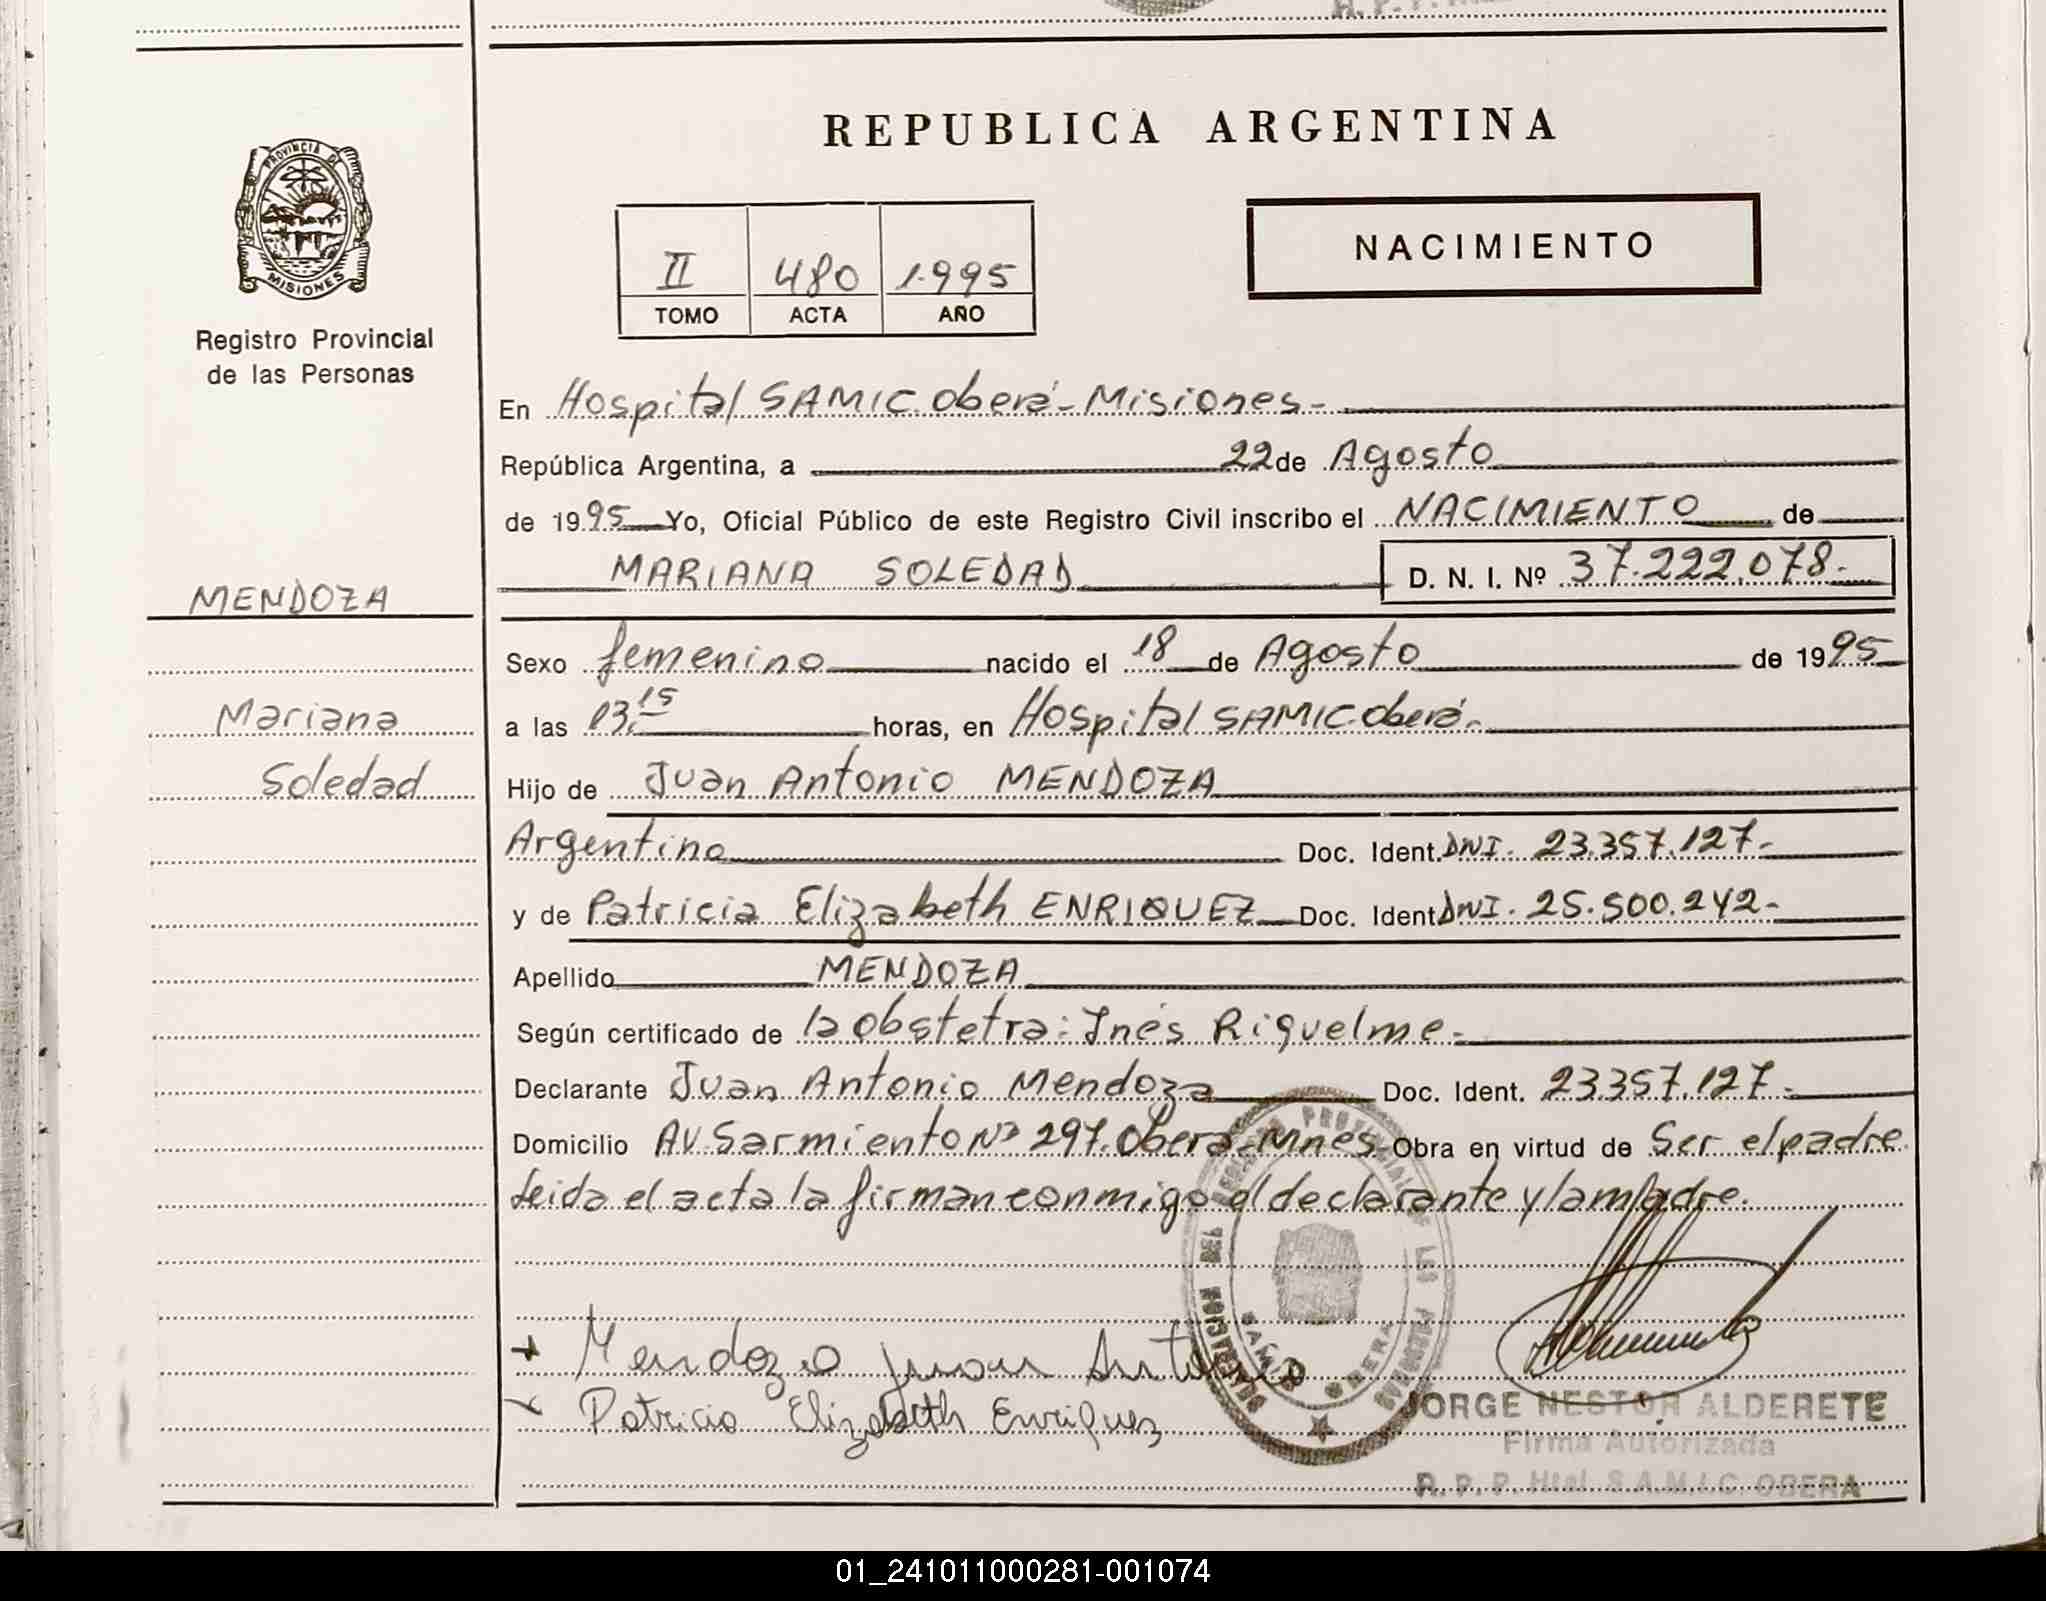 REPUBLICA ARGENTINA
PROVINCIA DE
MISIONES
Registro Provincial
de las Personas
II 480 1.995
TOMO ACTA AÑO
NACIMIENTO
En Hospital SAMIC. Oberá - Misiones -
República Argentina, a 22 de Agosto
de 1995 Yo, Oficial Público de este Registro Civil inscribo el NACIMIENTO de
MARIANA SOLEDAD D. N. I. Nº 37.222.078.-
MENDOZA
Mariana
Soledad
Sexo femenino nacido el 18 de Agosto de 1995
a las 13.15 horas, en Hospital SAMIC. Oberá.-
Hijo de Juan Antonio MENDOZA
Argentino Doc. Ident. DNI. 23.357.127.-
y de Patricia Elizabeth ENRIQUEZ Doc. Ident. DNI. 25.500.242.-
Apellido MENDOZA
Según certificado de la obstetra: Inés Riquelme.-
Declarante Juan Antonio Mendoza Doc. Ident. 23.357.127.-
Domicilio AV. Sarmiento Nº 297. Oberá - Mnes Obra en virtud de Ser el padre.
Leida el acta la firman conmigo el declarante y la madre.
Mendoza Juan Antonio
Patricia Elizabeth Enriquez
JORGE NESTOR ALDERETE
Firma Autorizada
R. P. P. Htal. S.A.M.I.C. OBERA
01_241011000281-001074